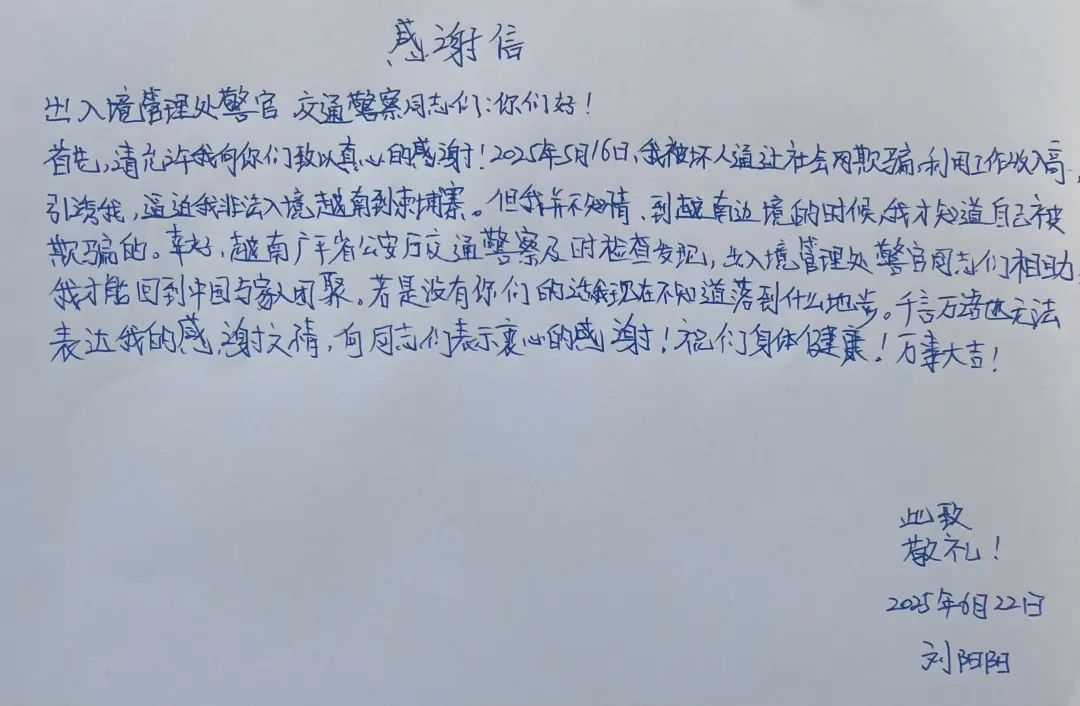 感谢信
出入境管理处警官、交通警察同志们:你们好!
首先,请允许我向你们致以真心的感谢!2025年5月16日,我被坏人通过社会网欺骗,利用工作收入高,
引诱我,逼迫我非法入境越南到柬埔寨。但我并不知情,到越南边境的时候,我才知道自己被
欺骗的。幸好,越南广平省公安厅交通警察及时检查发现,出入境管理处警官同志们相助,
我才能回到中国与家人团聚。若是没有你们的话我现在不知道落到什么地步。千言万语也无法
表达我的感谢之情,向同志们表示衷心的感谢!祝们身体健康!万事大吉!
此致
敬礼!
2025年6月22日
刘阳阳